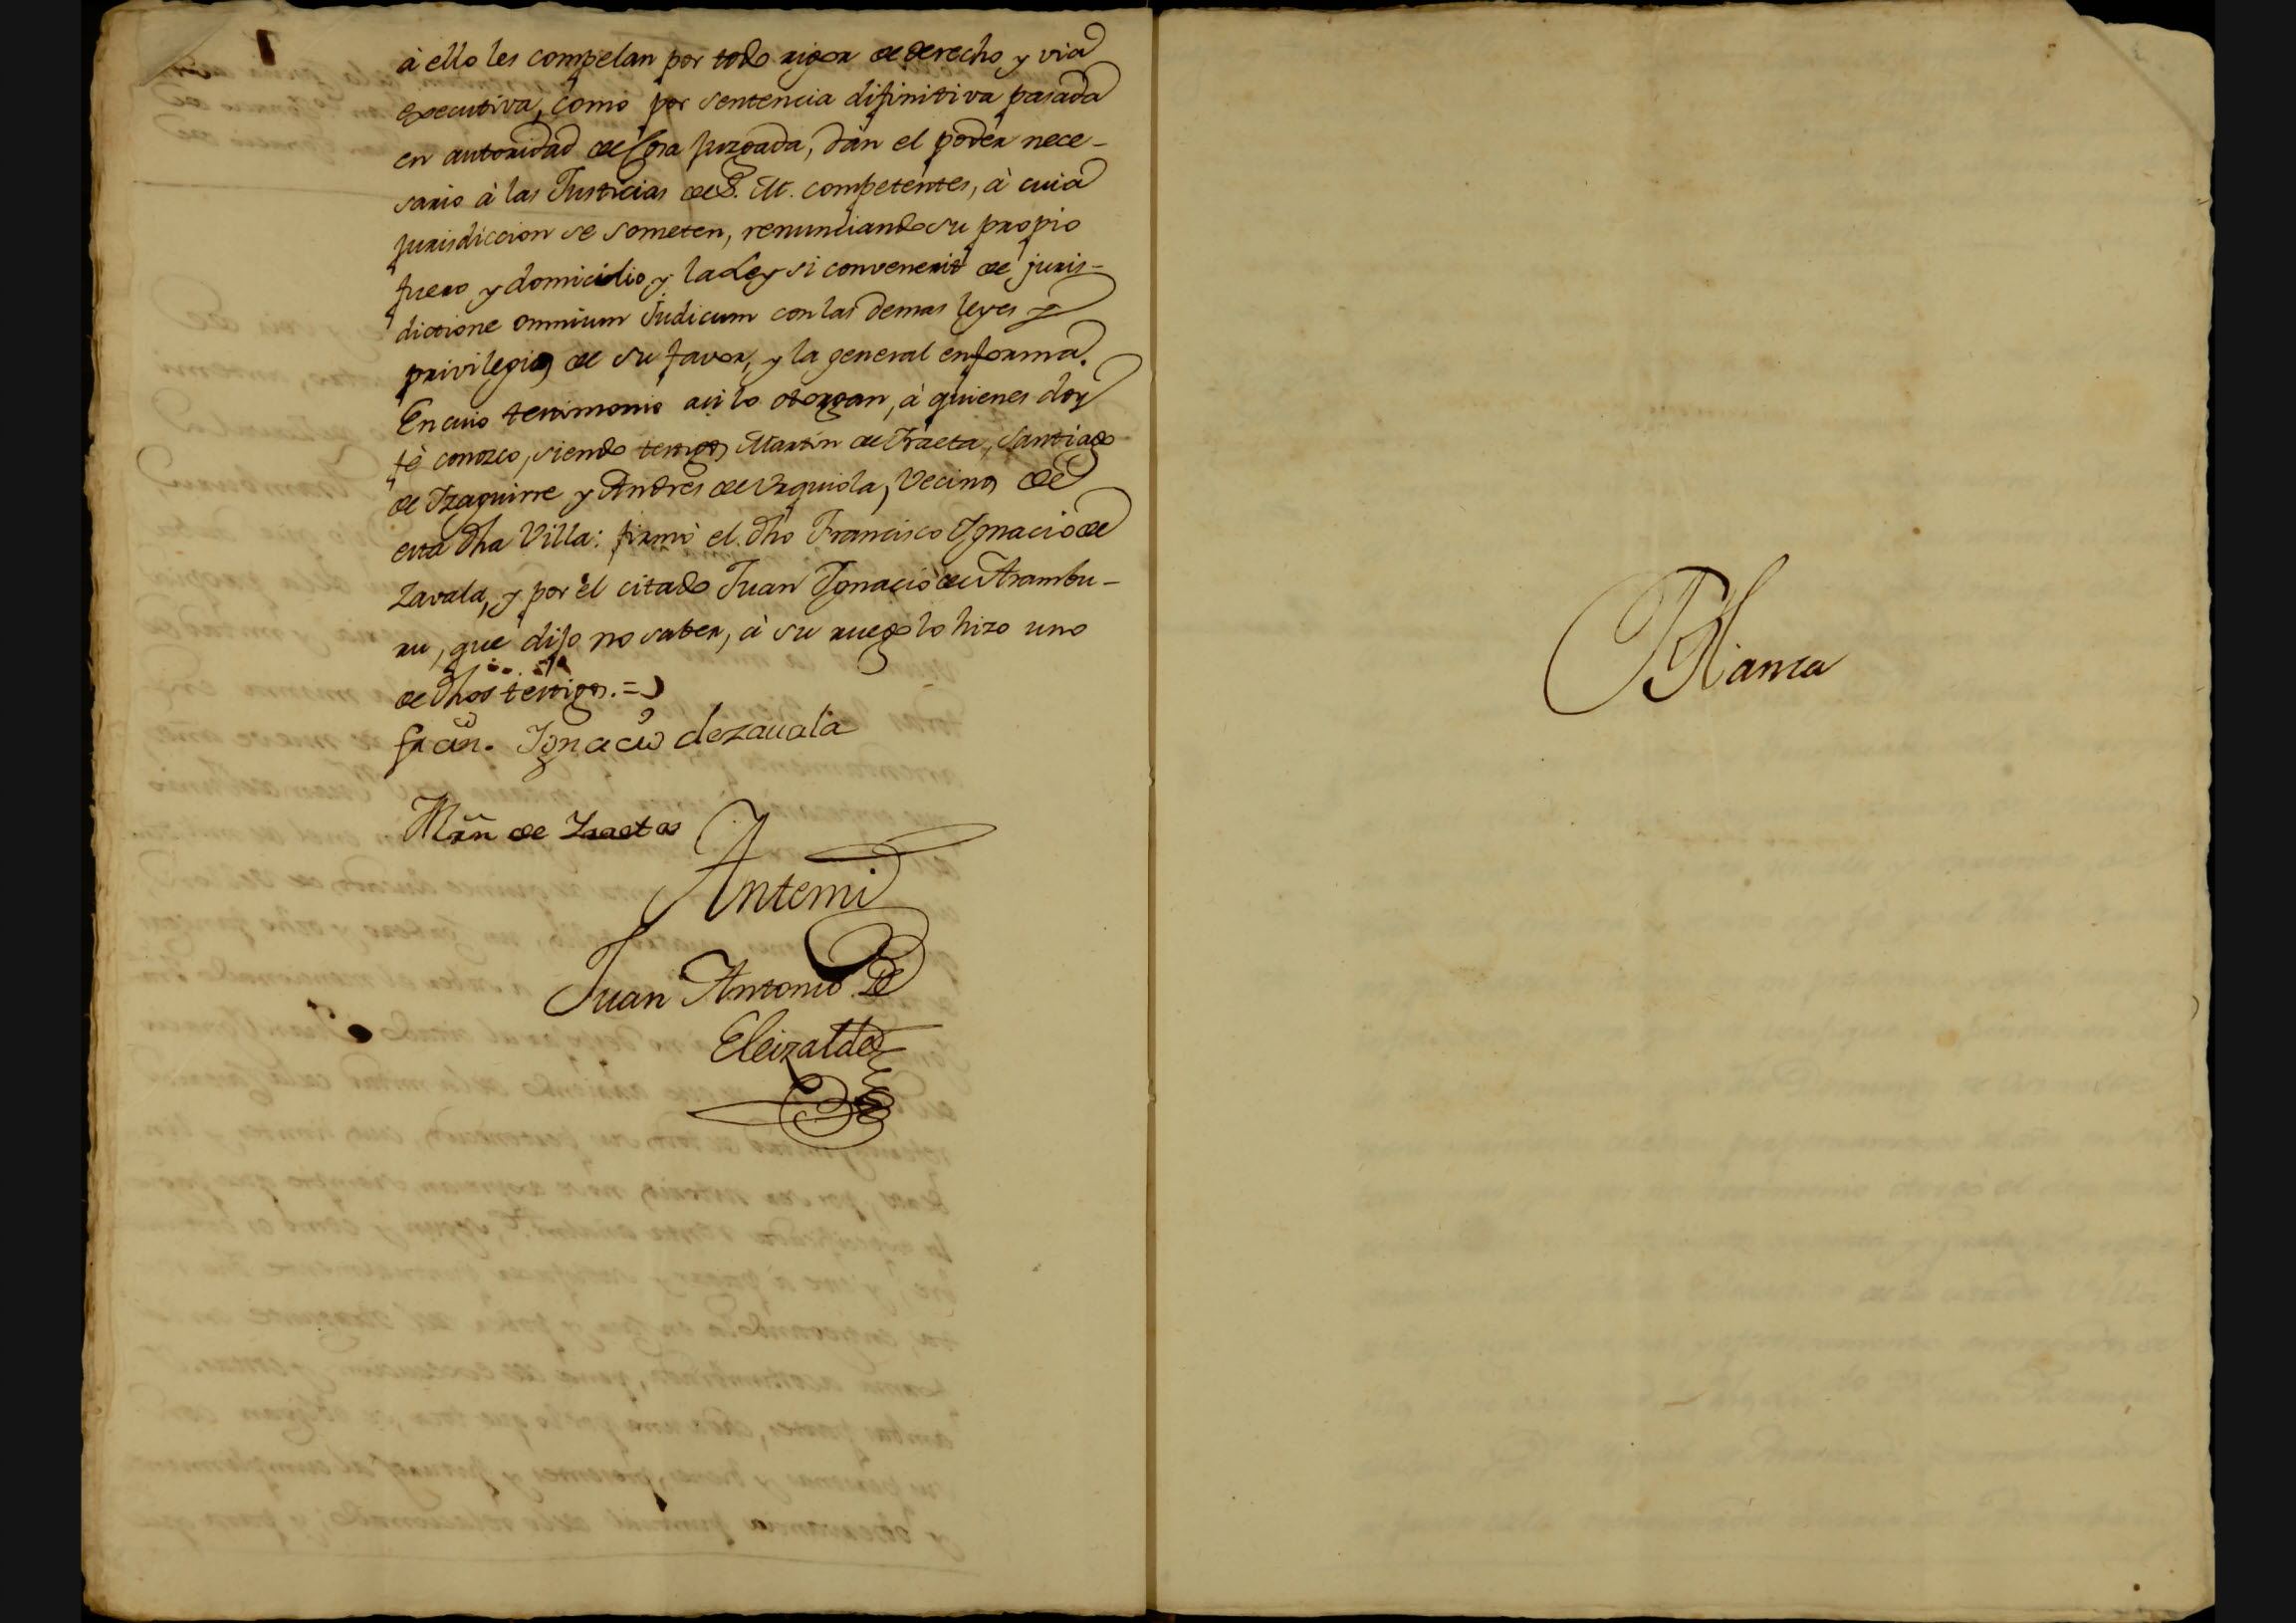 à ello les compelan por todo rigor de derecho y via
executiva, como por sentencia difinitiva pasada
en autoridad de Cosa juzgada, dàn el poder nece-
sario à las Justicias de S. M. competentes, à cuia
jurisdiccion se someten, renunciando su propio
fuero y domicidio, y la Ley si convenerit de juris-
dictione omnium Judicum con las demas leyes y
privilegios de su favor, y la general en forma.
En cuio testimonio asi lo otorgan, à quienes doy
fè conozco, siendo testigos Martin de Traeta, Santiago
de Yzaguirre y Andres de Urquiola, Vecinos de
esta dha Villa: firmò el dho Francisco Ygnacio de
Zavala, y por el citado Juan Ygnacio de Arambu-
ru, que dijo no saber, à su ruego lo hizo uno
de dhos testigos. =
Fran.co Ygnacio de zauala
Mrn de Traeta
Antemi
Juan Antonio De
Eleizalde
Blanca